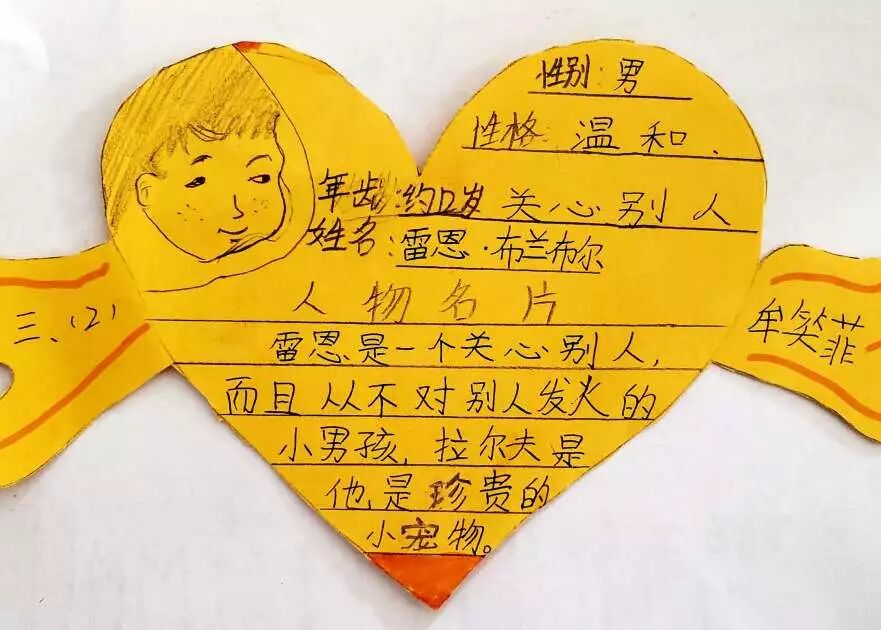 性别：男
性格：温和、
关心别人
年龄：约12岁
姓名：雷恩·布兰布尔
人物名片
雷恩是一个关心别人，
而且从不对别人发火的
小男孩，拉尔夫是
他是珍贵的
小宠物。
三、（2）
牟笑菲